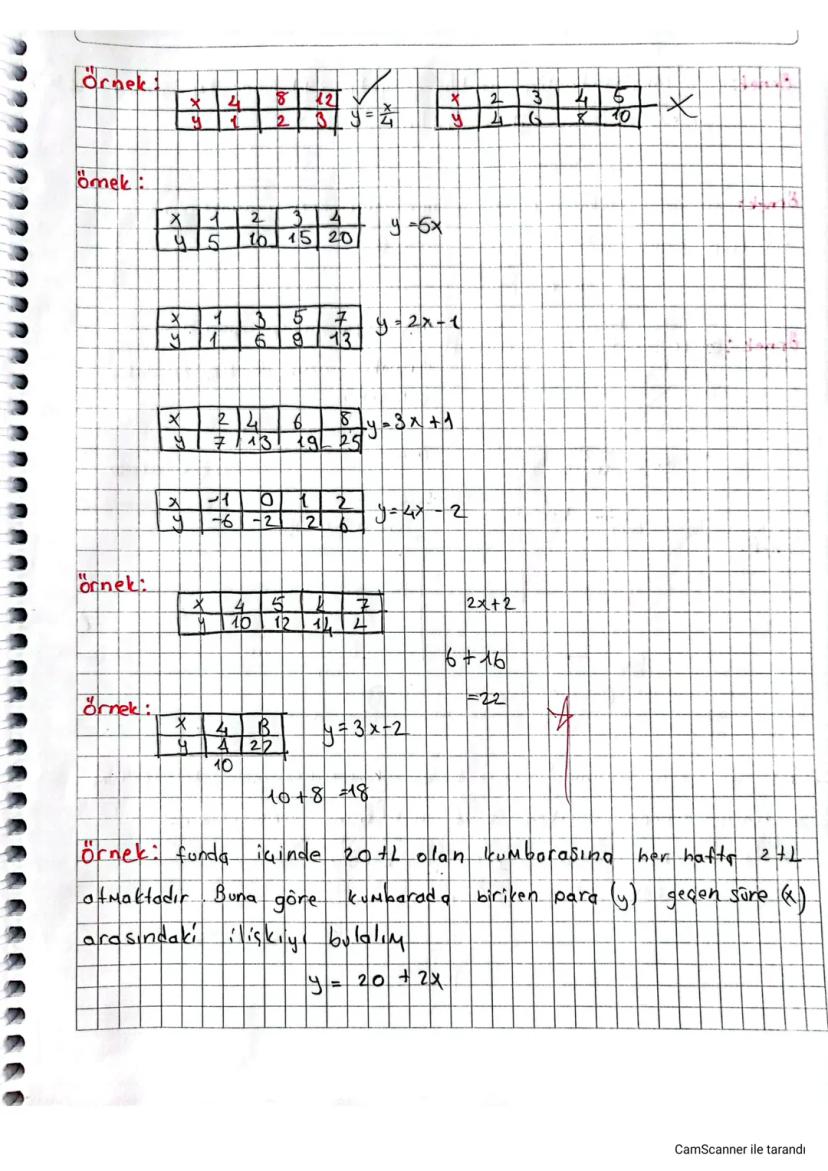 Örnek:
x 4 8 12
y 1 2 3
y = x/4
x 2 3 4 5
y 4 6 8 10
X
Örnek:
x 1 2 3 4
y 5 10 15 20
y = 5x
x 1 3 5 7
y 1 6 9 13
y = 2x - 1
x 2 4 6 8
y 7 13 19 25
y = 3x + 1
x -1 0 1 2
y -6 -2 2 6
y = 4x - 2
Örnek:
x 4 5 k 7
y 10 12 14 L
2x+2
6 + 16
= 22
Örnek:
x 4 B
y A 22
10
y = 3x - 2
10 + 8 = 18
Örnek: funda içinde 20 tL olan kumbarasına her hafta 2 tL
atmaktadır. Buna göre kumbarada biriken para (y) geçen süre (x)
arasındaki ilişkiyi bulalım
y = 20 + 2x
CamScanner ile tarandı